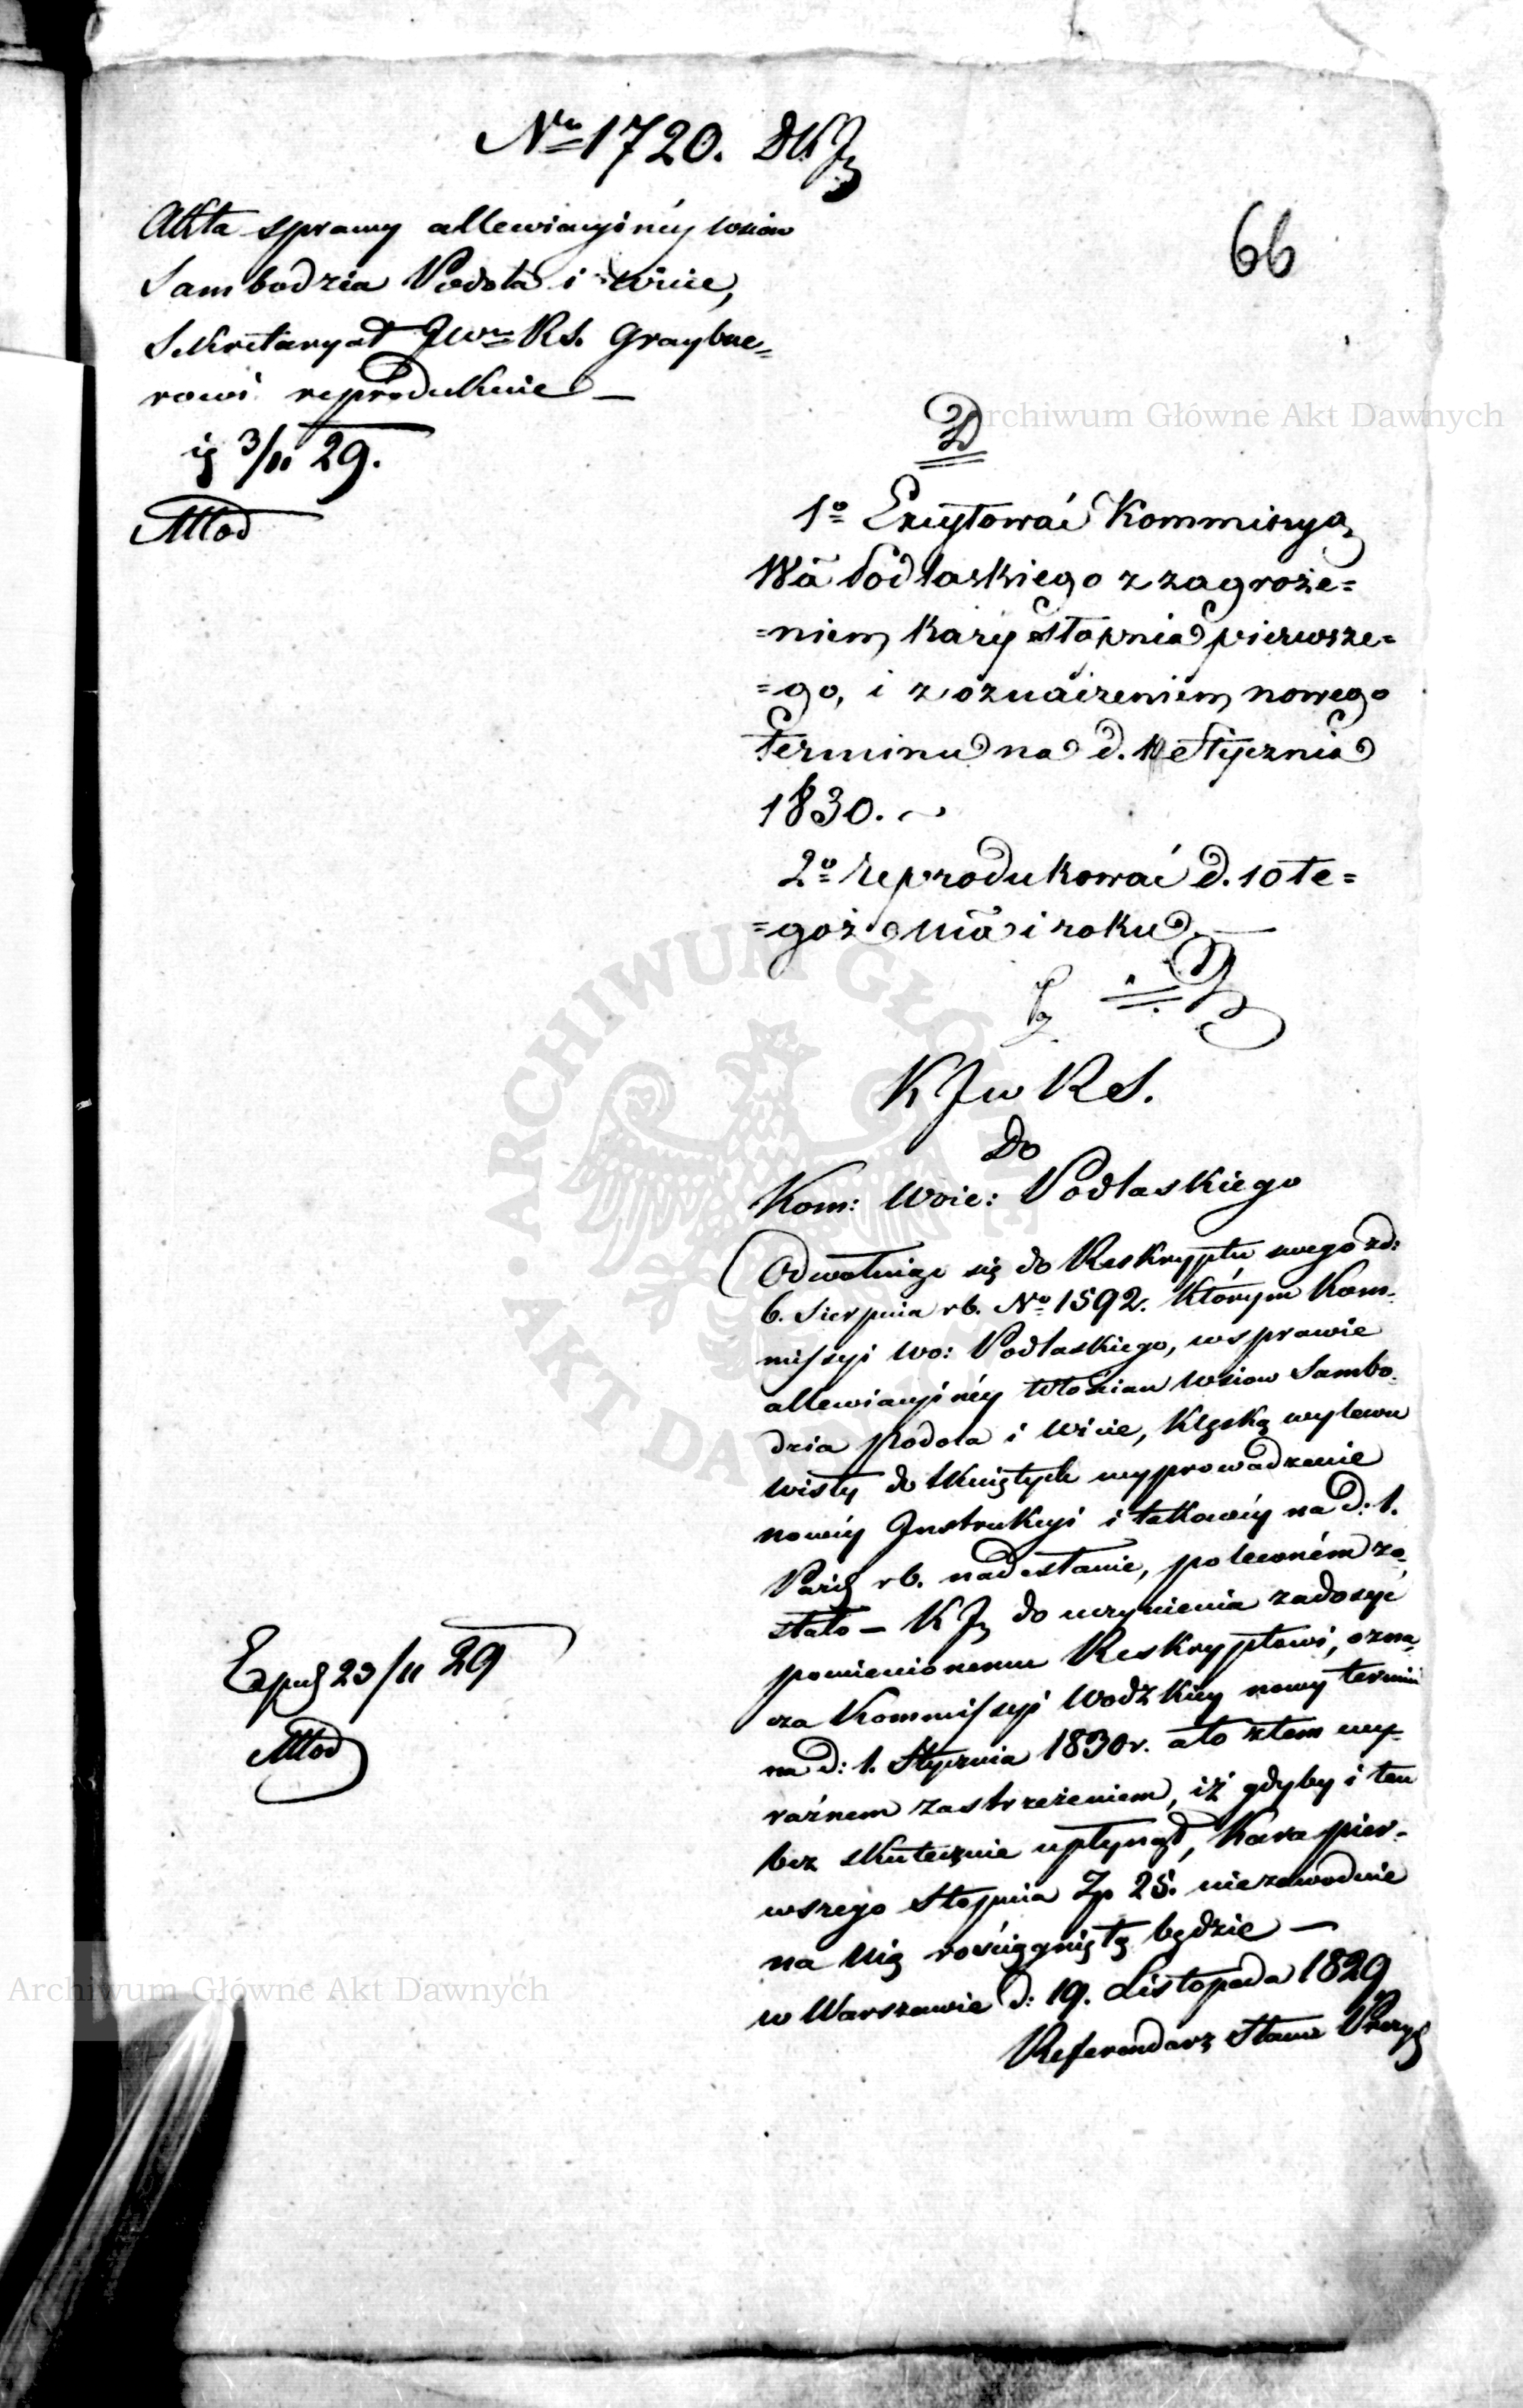 Nro 1720. DKJ
66
Akta sprawy allewiacyinéy wsiow
Sambodzia Podola i Wicie,
Sekretaryat JWu RS. Graybne=
rowi reprodukuie —
3/11 29.
Młod
D
1o Excytować Kommissyą
Wa Podlaskiego z zagroże=
=niem kary stopnia pierwsze=
=go, i z oznaczeniem nowego
terminu na d. 1 Stycznia
1830. ~
2o reprodukować d. 10 te=
=goż ma i roku —
K J w R S.
Do
Kom: Woie: Podlaskiego
Odwołuiąc się do Reskryptu swego z d:
6. Sierpnia rb. No 1592. którym Kom-
missyi Wo: Podlaskiego, w sprawie
allewiacyinéy Włościan wsiow Sambo-
dzia Podola i Wicie, klęską wylewu
Wisły dotkniętych wyprowadzenie
nowéy Instrukcyi i takowéy na d: 1.
Paźd rb. nadesłanie, poleconém zo-
stało — K J do uczynienia zadosyć
pomienionemu Reskryptowi, ozna-
cza Kommissyi Wodzkiey nowy termin
na d: 1. Stycznia 1830 r. a to z tem wy-
raźnem zastrzeżeniem, iż gdyby i ten
bezskutecznie upłynął, kara pier-
wszego stopnia Zp 25. niezawodnie
na Nią rościągniętą będzie —
w Warszawie d: 19. Listopada 1829
Referendarz Stanu Prezyd
Exped 23/11 29
Młod
Archiwum Główne Akt Dawnych
Archiwum Główne Akt Dawnych
ARCHIWUM GŁÓWNE AKT DAWNYCH